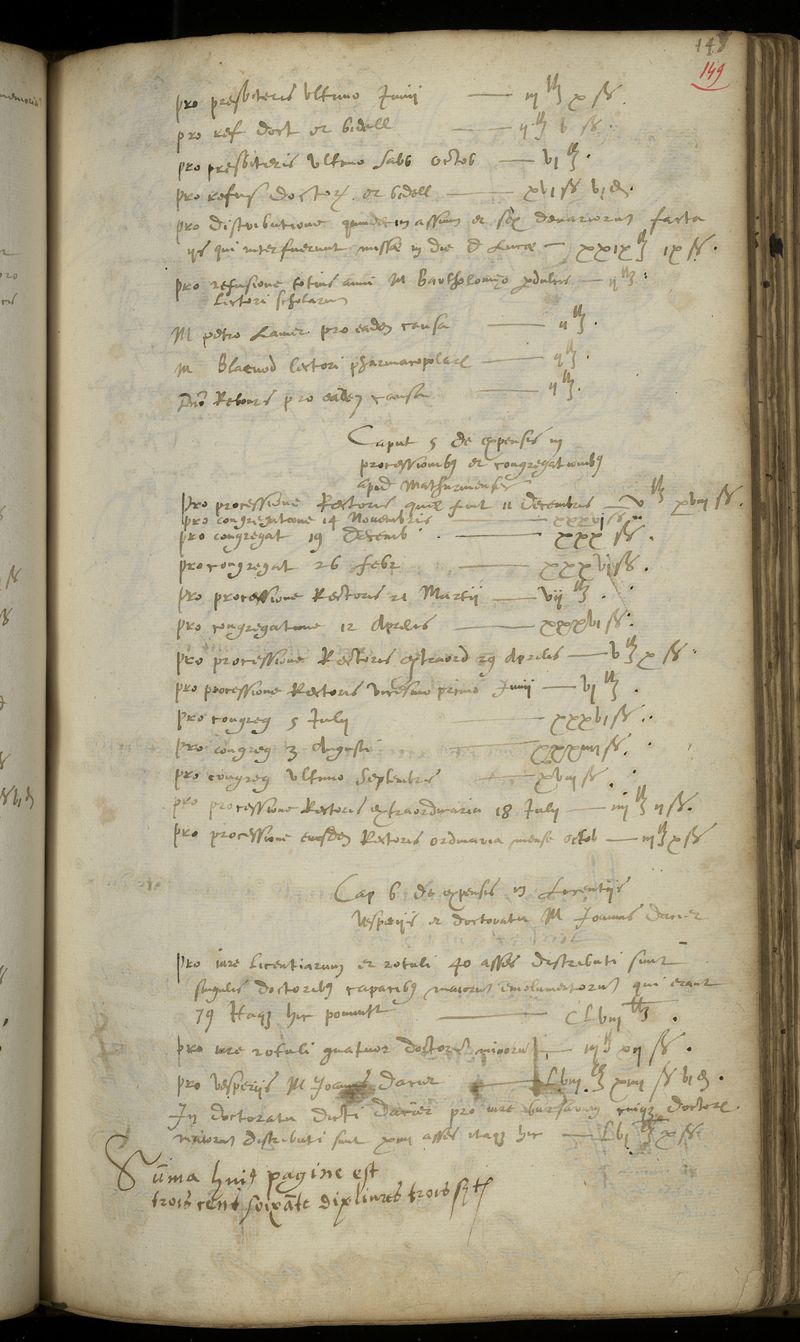 148
149
pro presbiteris ultimo Junij — iij lt x ss.
pro ref doct et bidell — ij lt v ss.
pro presbiteris ultimo sabb octob — vj lt.
pro refus doctor. et bidell — xvj ss vj d.
pro distributione quindecim assium et sex denariorum facta
ijs qui interfuerunt missae in die D Lucae — xxix lt ix ss.
pro refusione totius anni M Bartholomeo — ij lt.
lectori scholarum
M petro Lamer pro eadem causa — ij lt.
M Blacuod lectori pharmacopolar — ij lt.
Dno Rebours pro eadem causa — ij lt.
Caput 5 de expensis in
processionibus et congregationibus
apud Mathurinenses
Pro processione Rectoris quae fuit 11 decembris — v lt xviij ss.
pro congregatione 14 Novembris — xxxvj ss.
pro congregat 19 decemb — xxx ss.
pro congregat 26 febr — xxxvj ss.
pro processione Rectoris 21 Martij — vij lt.
pro congregatione 12 Aprilis — xxxvj ss.
pro processione Rectoris extraord 29 Aprilis — v lt x ss.
pro processione Rectoris vicesimo primo Junij — vj lt.
pro congreg 5 July — xxxvj ss.
pro congreg 3 Augusti — xxxiiij ss.
pro congreg ultimo Septembris — xviij ss.
pro processione Rectoris extraordinaria 18 July — iiij lt ij ss.
pro processione eiusdem Rectoris ordinaria mense octob — iij lt x ss
Cap 6 de expensis in Licentijs
vesperijs et doctoratu M Joannis Darier
Pro iure licentiarum et rotuli 40 asses distributi sunt
singulis doctoribus capacibus maiorum emolumentorum qui erant
79 Itaque hic ponuntur — CLviij lt.
pro iure rotuli quatuor doctorum minorum — iiij lt xij ss.
pro vesperijs M Joannis Darier — Lviij lt xiiij ss vj d.
In doctoratu dicti Darier pro iure bursarum cuique doctori
maiorum distributi sunt xiiij asses itaque hic — Lvj lt x ss.
Suma huius pagine est
trois cent soixãte dix livres trois s ts